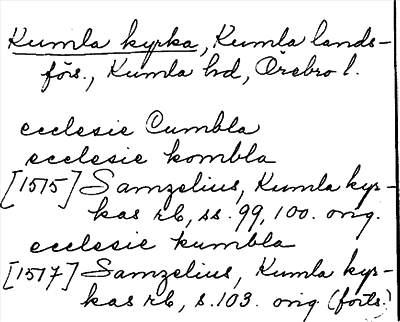 Kumla kyrka, Kumla lands-
förs., Kumla hd, Örebro l.
ecclesie Cumbla
ecclesie kombla
[1515] Samzelius, Kumla kyr-
kas rb, ss. 99, 100. orig.
ecclesie kumbla
[1517] Samzelius, Kumla kyr-
kas rb, s. 103. orig (forts.)